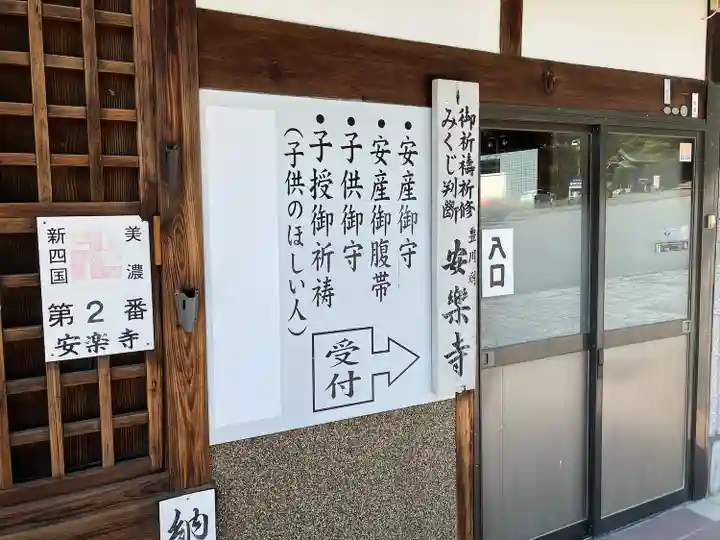 御祈禱祈修
みくじ判断
豊川
安樂寺
入口
●安産御守
●安産御腹帯
●子供御守
●子授御祈祷
(子供のほしい人)
受付
美濃
新四国
第2番
安楽寺
納